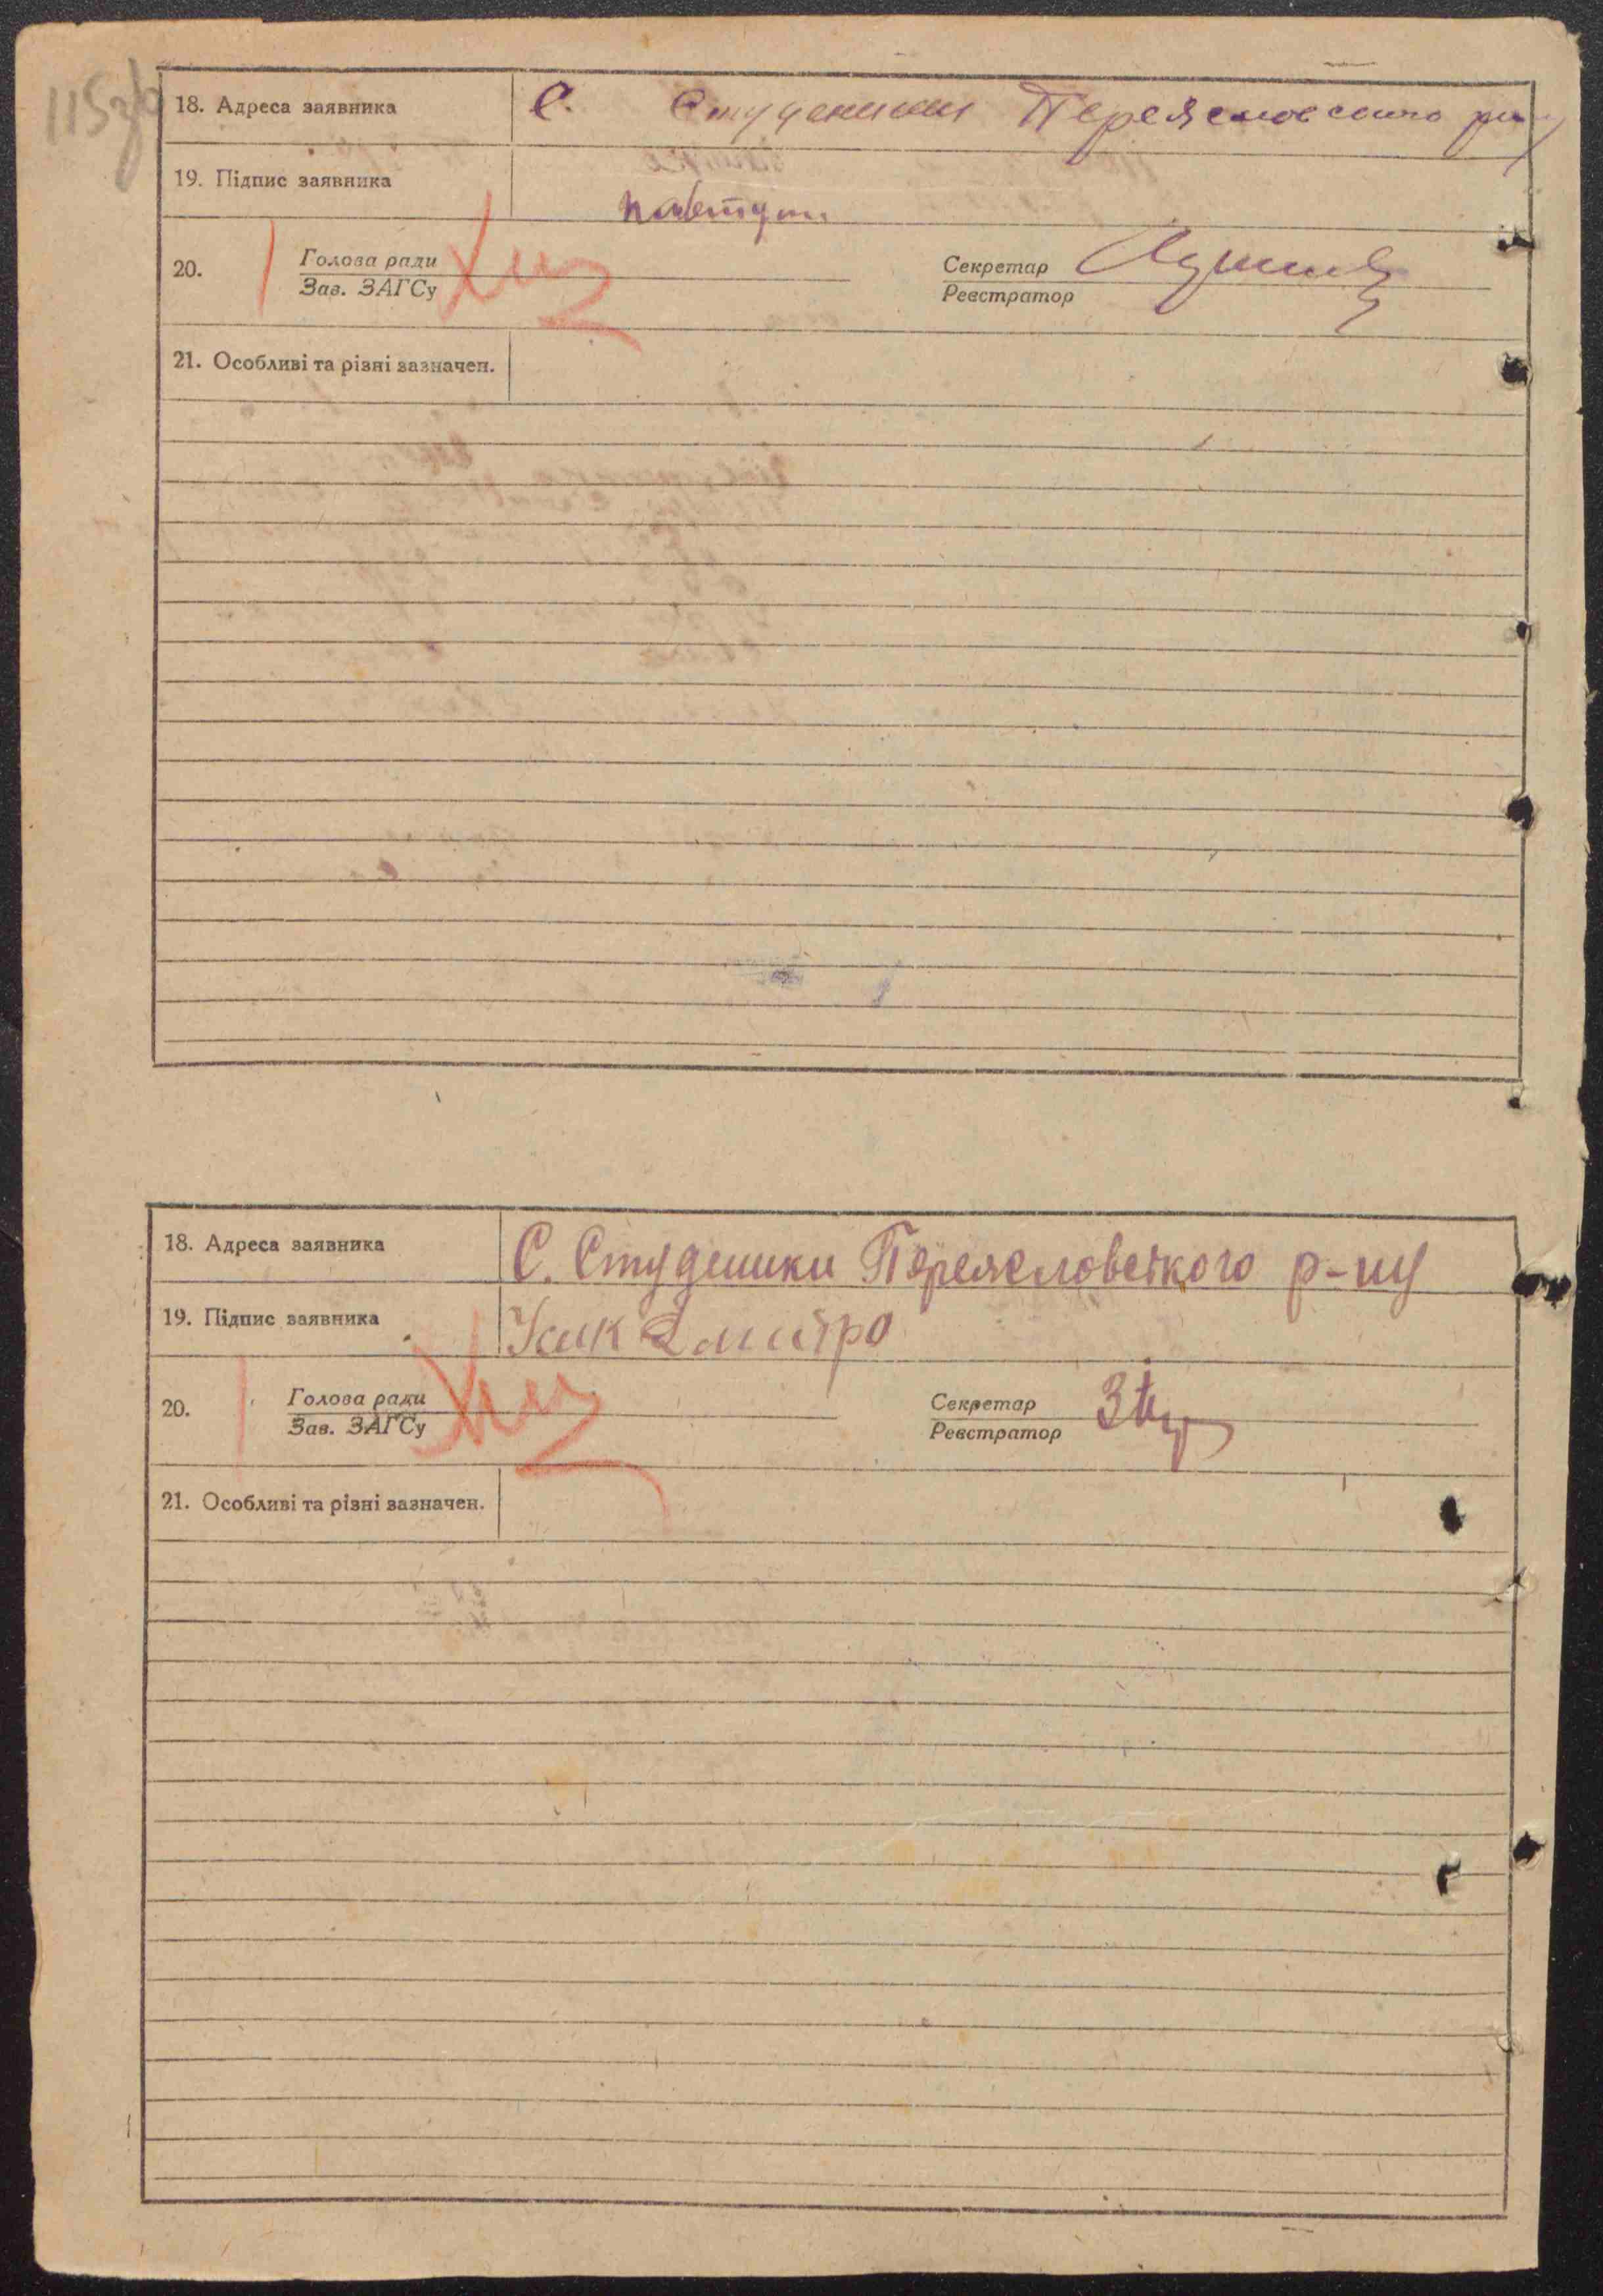 115зв
18. Адреса заявника С. Студеники Переяславського р-ну
19. Підпис заявника
20. Голова ради Секретар
Зав. ЗАГСу Реєстратор
21. Особливі та різні зазначен.
18. Адреса заявника С. Студеники Переясловського р-ну
19. Підпис заявника Усик Дмитро
20. Голова ради Секретар
Зав. ЗАГСу Реєстратор
21. Особливі та різні зазначен.